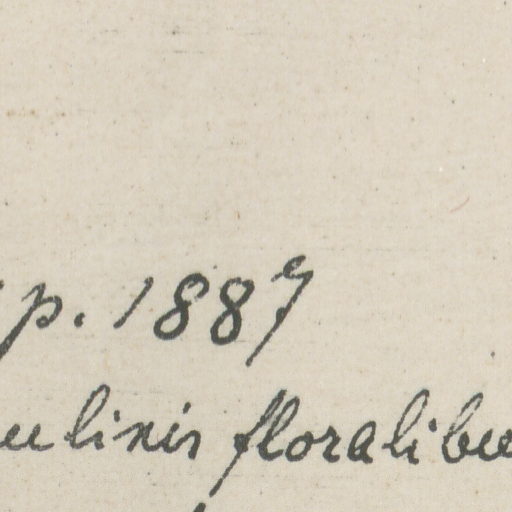 p. 1887
ulinis floralibu